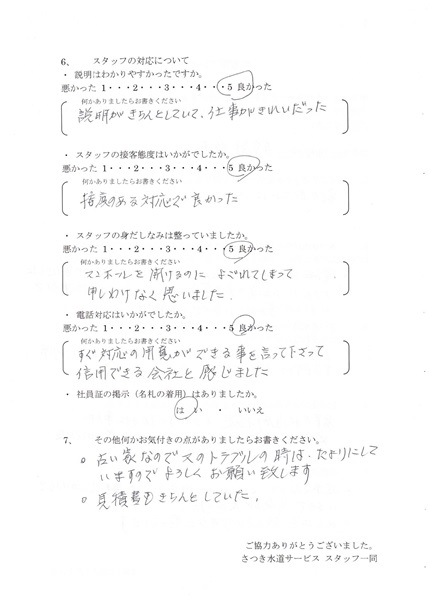 6、 スタッフの対応について
・ 説明はわかりやすかったですか。
悪かった 1・・・2・・・3・・・4・・・5 良かった
何かありましたらお書きください
説明がきちんとしていて、仕事がきれいだった
・ スタッフの接客態度はいかがでしたか。
悪かった 1・・・2・・・3・・・4・・・5 良かった
何かありましたらお書きください
のある対応で良かった
・ スタッフの身だしなみは整っていましたか。
悪かった 1・・・2・・・3・・・4・・・5 良かった
何かありましたらお書きください
マンホールを開けるのに よごれてしまって
申しわけなく思いました.
・ 電話対応はいかがでしたか。
悪かった 1・・・2・・・3・・・4・・・5 良かった
何かありましたらお書きください
すぐ対応の用意ができる事を言って下さって
信用できる会社と感じました
・ 社員証の掲示（名札の着用）はありましたか。
はい ・ いいえ
7、 その他何かお気付きの点がありましたらお書きください。
○ 古い家なので 又のトラブルの時は、たよりにして
いますのでよろしくお願い致します
○ 見積書もきちんとしていた.
ご協力ありがとうございました。
さつき水道サービス スタッフ一同